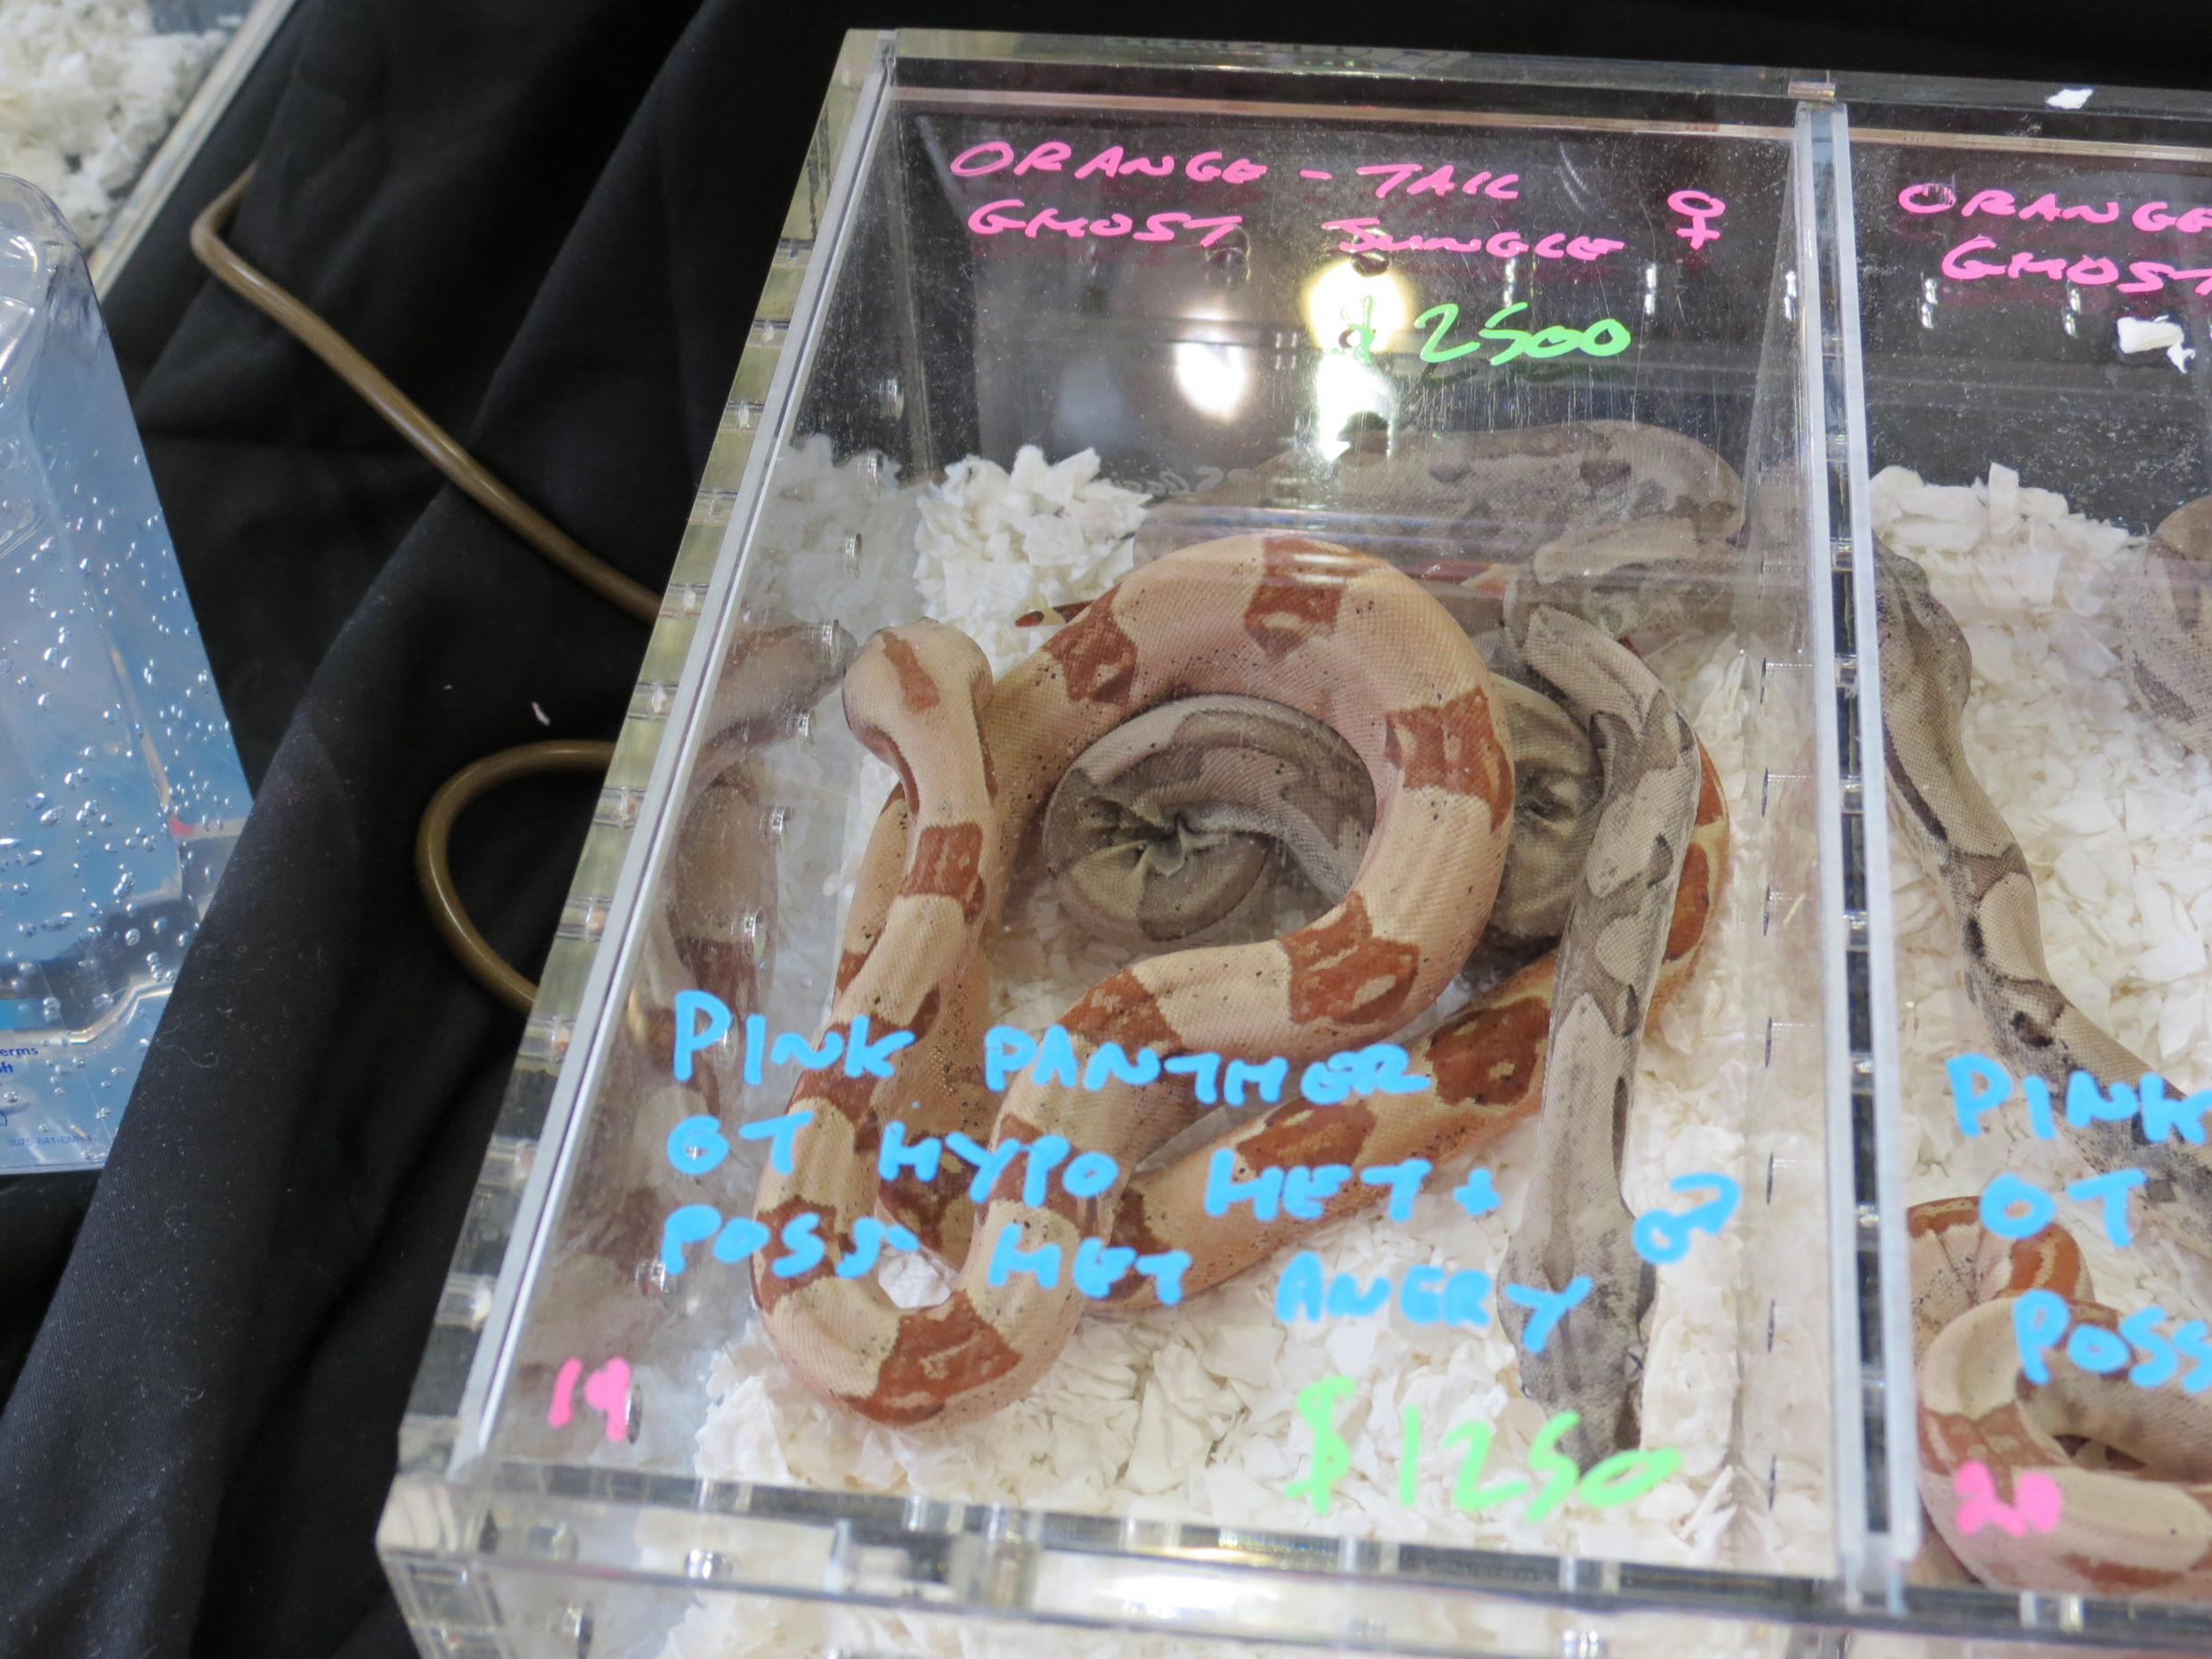 ORANGE - TAIL
GHOST JUNGLE ♀
$ 2500
PINK PANTHER
OT HYPO HET +
POSS HET ANERY ♂
19
$1250
ORANGE
GHOST
PINK
OT
POSS
20
erms
3075-841-CMR-F